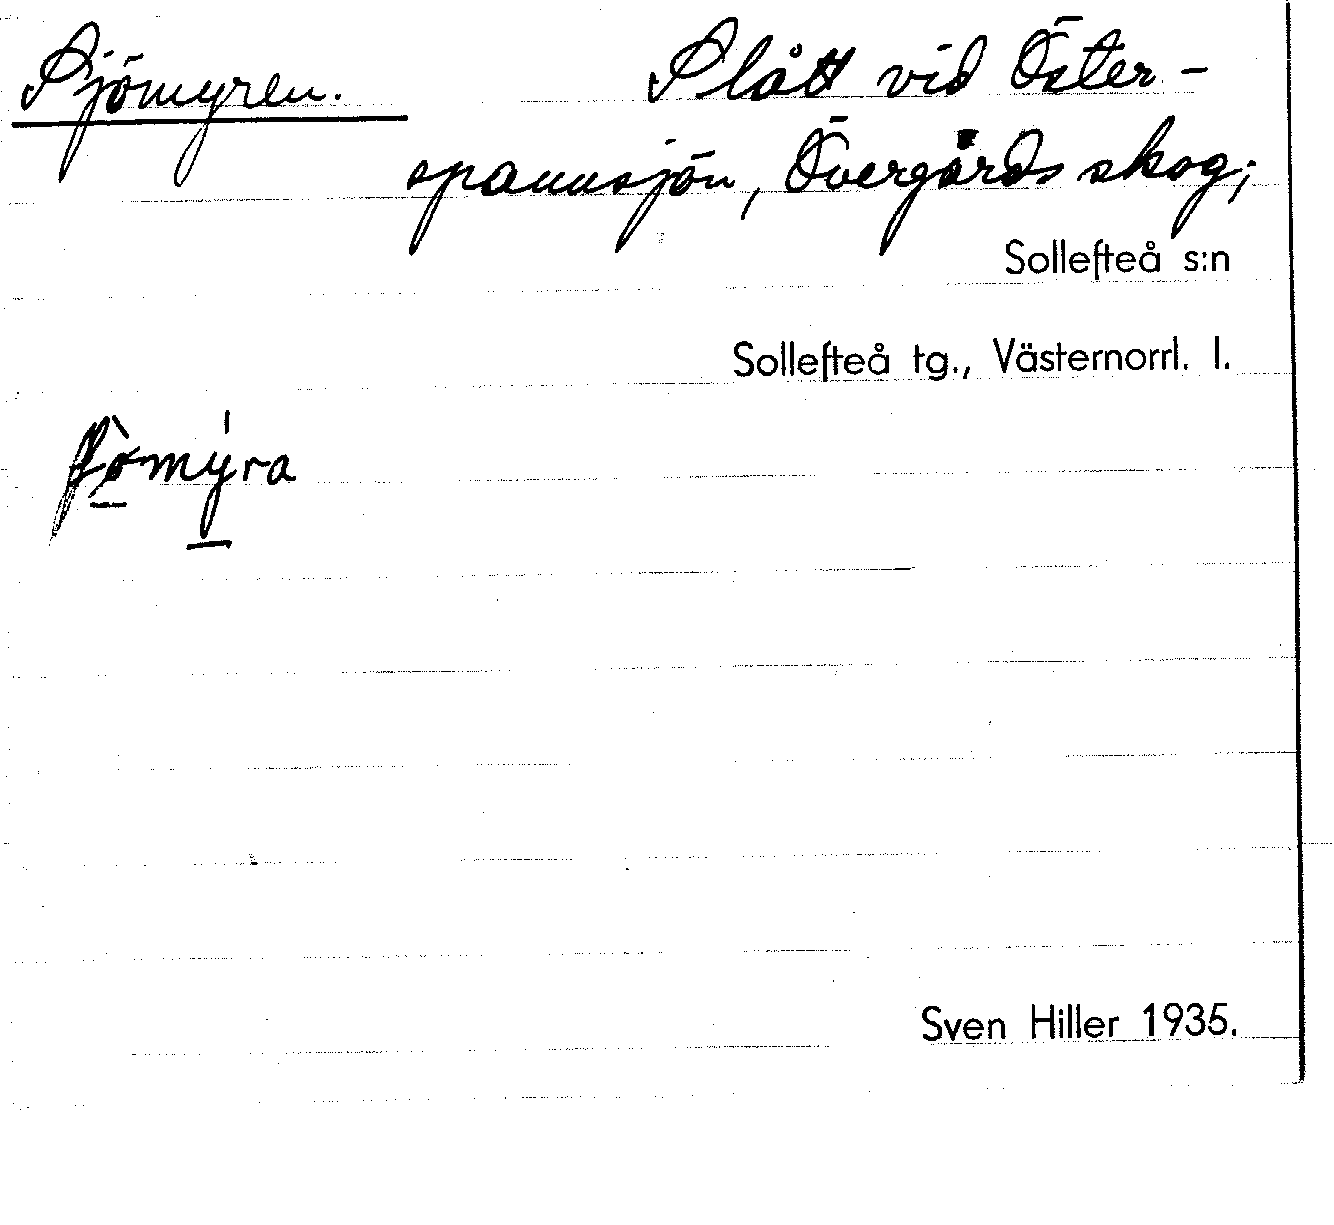 Sjömyren.
Slått vid Öster-
spannsjön, Övergårds skog;
Sollefteå s:n
Sollefteå tg., Västernorrl. l.
ʃò̱mý̱ra
Sven Hiller 1935.